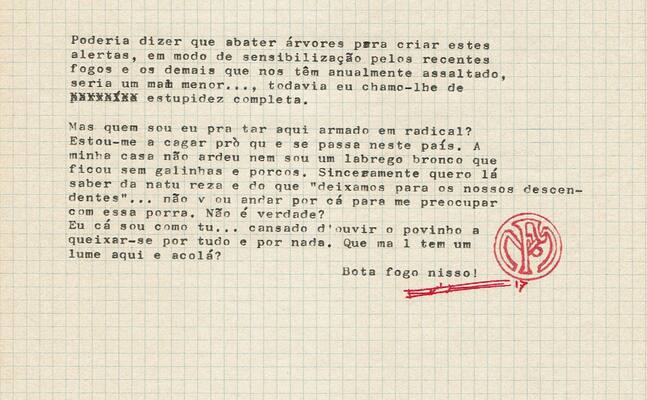 Poderia dizer que abater árvores para criar estes
alertas, em modo de sensibilização pelos recentes
fogos e os demais que nos têm anualmente assaltado,
seria um mal menor..., todavia eu chamo-lhe de
estupidez completa.
Mas quem sou eu pra tar aqui armado em radical?
Estou-me a cagar prò qu e se passa neste país. A
minha casa não ardeu nem sou um labrego bronco que
ficou sem galinhas e porcos. Sinceramente quero lá
saber da natu reza e do que "deixamos para os nossos descen-
dentes"... não v ou andar por cá para me preocupar
com essa porra. Não é verdade?
Eu cá sou como tu... cansado d'ouvir o povinho a
queixar-se por tudo e por nada. Que ma l tem um
lume aqui e acolá?
Bota fogo nisso!
17